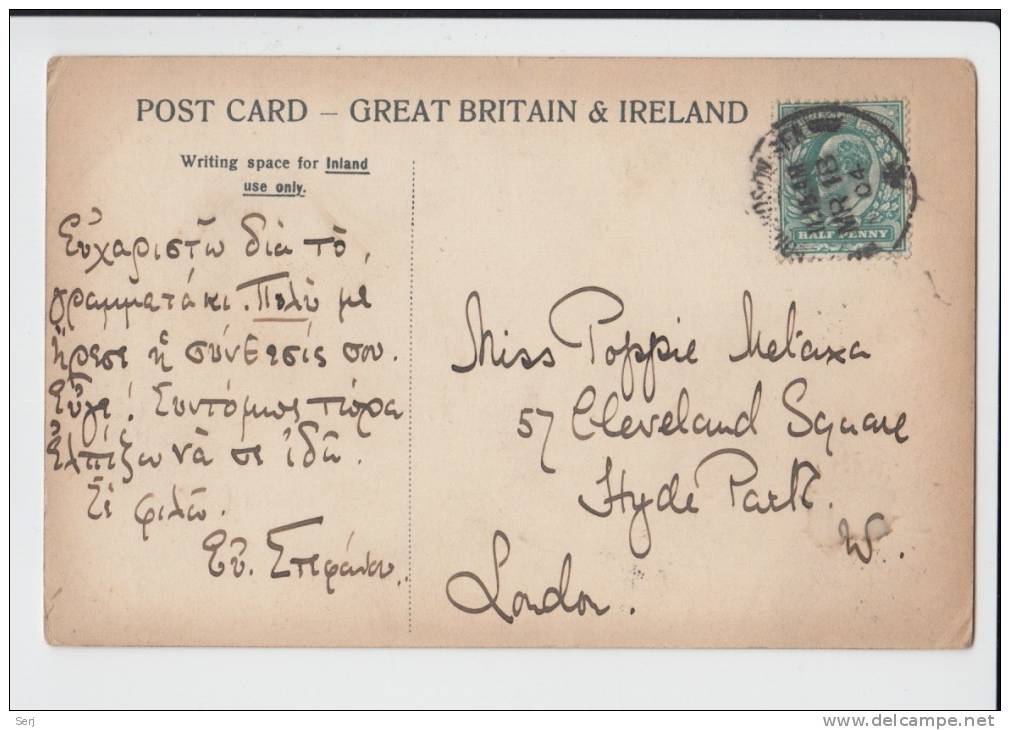 POST CARD – GREAT BRITAIN & IRELAND
Writing space for Inland
use only.
HALF PENNY
MR 18
04
Εὐχαριστῶ διὰ τὸ
γραμματάκι. Πολὺ με
ἤρεσε ἡ σύνεσίς σου.
Εὖγε! Συντόμως τώρα
ἐλπίζω νὰ σὲ ἰδῶ.
Σὲ φιλῶ.
Εὐ. Στεφάνου.
Miss Poppie Melaxa
57 Cleveland Square
Hyde Park.
W.
London.
Serj
www.delcampe.net